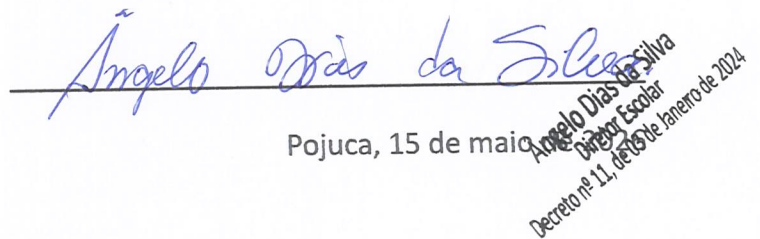 Ângelo Dias da Silva
Pojuca, 15 de maio
Angelo Dias da Silva
Diretor Escolar
Decreto nº 11, de 05 de Janeiro de 2024